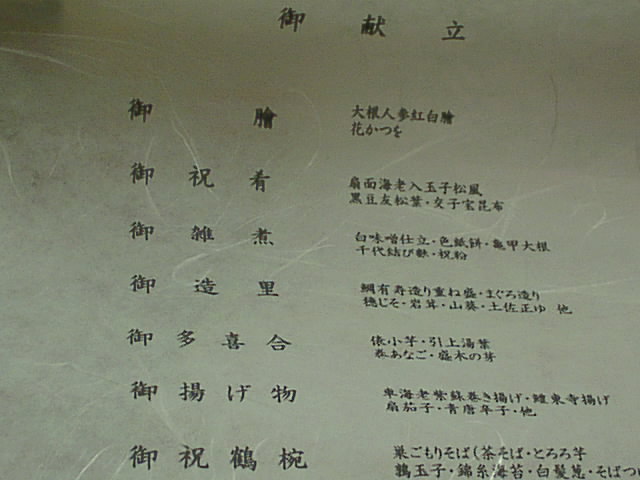 御献立
御膾
大根人参紅白膾
花かつを
御祝肴
扇面海老入玉子松風
黒豆友松葉・交子宝昆布
御雑煮
白味噌仕立・色紙餅・亀甲大根
千代結び麩・祝粉
御造里
鯛有寿造り重ね盛・まぐろ造り
穂じそ・岩茸・山葵・土佐正ゆ 他
御多喜合
俵小芋・引上湯葉
巻あなご・盛木の芽
御揚げ物
車海老紫蘇巻き揚げ・鱧東寺揚げ
扇茄子・青唐辛子・他
御祝鶴椀
巣ごもりそば(茶そば・とろろ芋
鶉玉子・錦糸海苔・白髪葱・そばつ